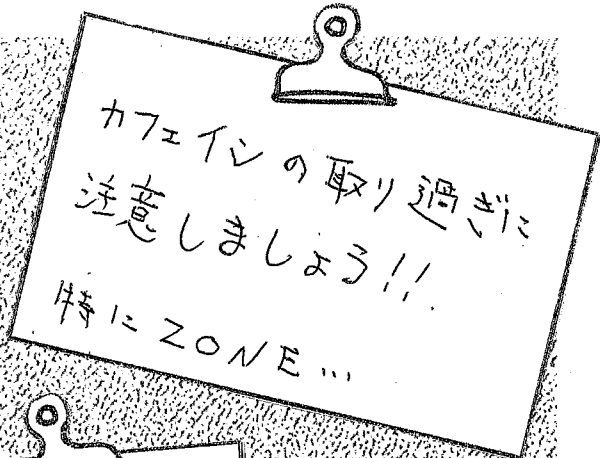 カフェインの取り過ぎに
注意しましょう!!
特にZONE...